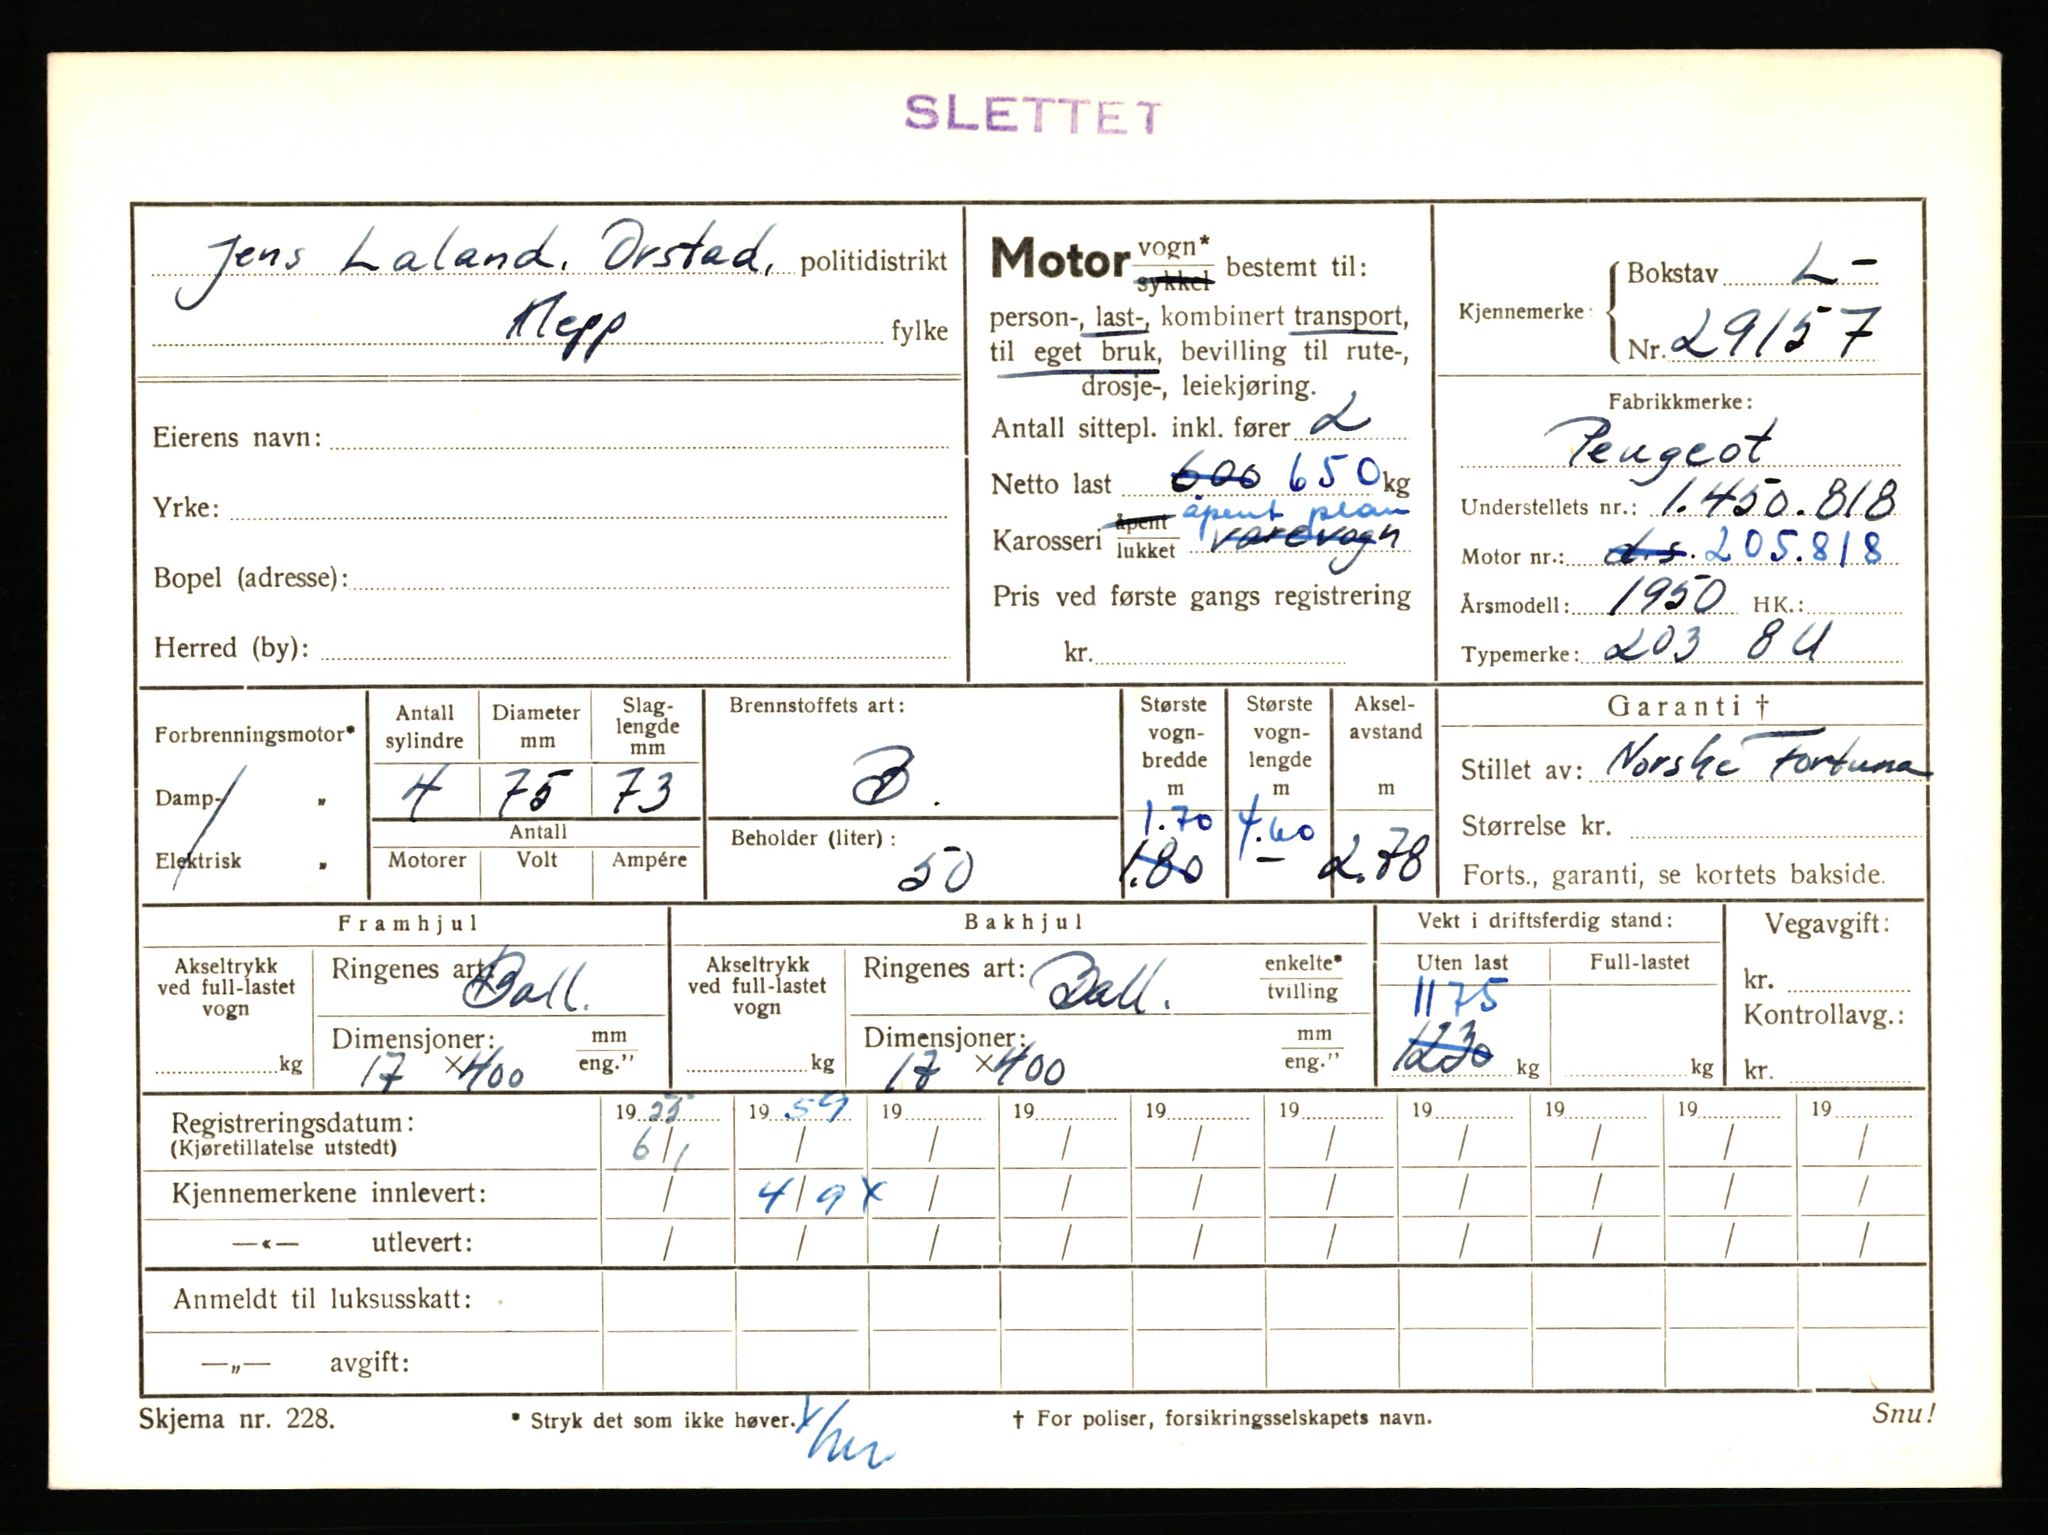 SLETTET
Jens Laland, Orstad, politidistrikt
Klepp fylke
Eierens navn:
Yrke:
Bopel (adresse):
Herred (by):
Motor vogn* sykkel bestemt til:
person-, last-, kombinert transport,
til eget bruk, bevilling til rute-,
drosje-, leiekjøring.
Antall sittepl. inkl. fører 2
Netto last 600 650 kg
åpent plan
Karosseri åpent lukket varevogn
Pris ved første gangs registrering
kr.
Kjennemerke: Bokstav L-
Nr. 29157
Fabrikkmerke:
Peugeot
Understellets nr.: 1.450.818
Motor nr.: d.s. 205.818
Årsmodell: 1950 HK.:
Typemerke: 203 8U
Forbrenningsmotor*
Damp- „
Elektrisk „
Antall sylindre
4
Diameter mm
75
Slag-lengde mm
73
Antall
Motorer Volt Ampére
Brennstoffets art:
B.
Beholder (liter):
50
Største vogn-bredde m
1.70
1.80
Største vogn-lengde m
4.60
—
Aksel-avstand m
2.78
Garanti †
Stillet av: Norske Fortuna
Størrelse kr.
Forts., garanti, se kortets bakside.
Framhjul
Akseltrykk ved full-lastet vogn
kg
Ringenes art: Ball.
Dimensjoner: mm eng."
17 × 400
Bakhjul
Akseltrykk ved full-lastet vogn
kg
Ringenes art: Ball. enkelte* tvilling
Dimensjoner: mm eng."
17 × 400
Vekt i driftsferdig stand:
Uten last Full-lastet
1175
1230 kg kg
Vegavgift:
kr.
Kontrollavg.:
kr.
Registreringsdatum: 19 55 19 59 19 19 19 19 19 19 19 19
(Kjøretillatelse utstedt) 6/1 / / / / / / / / /
Kjennemerkene innlevert: / 4/9 x / / / / / / / /
—«— utlevert: / / / / / / / / / /
Anmeldt til luksusskatt:
—„— avgift:
Skjema nr. 228. * Stryk det som ikke høver. † For poliser, forsikringsselskapets navn. Snu!